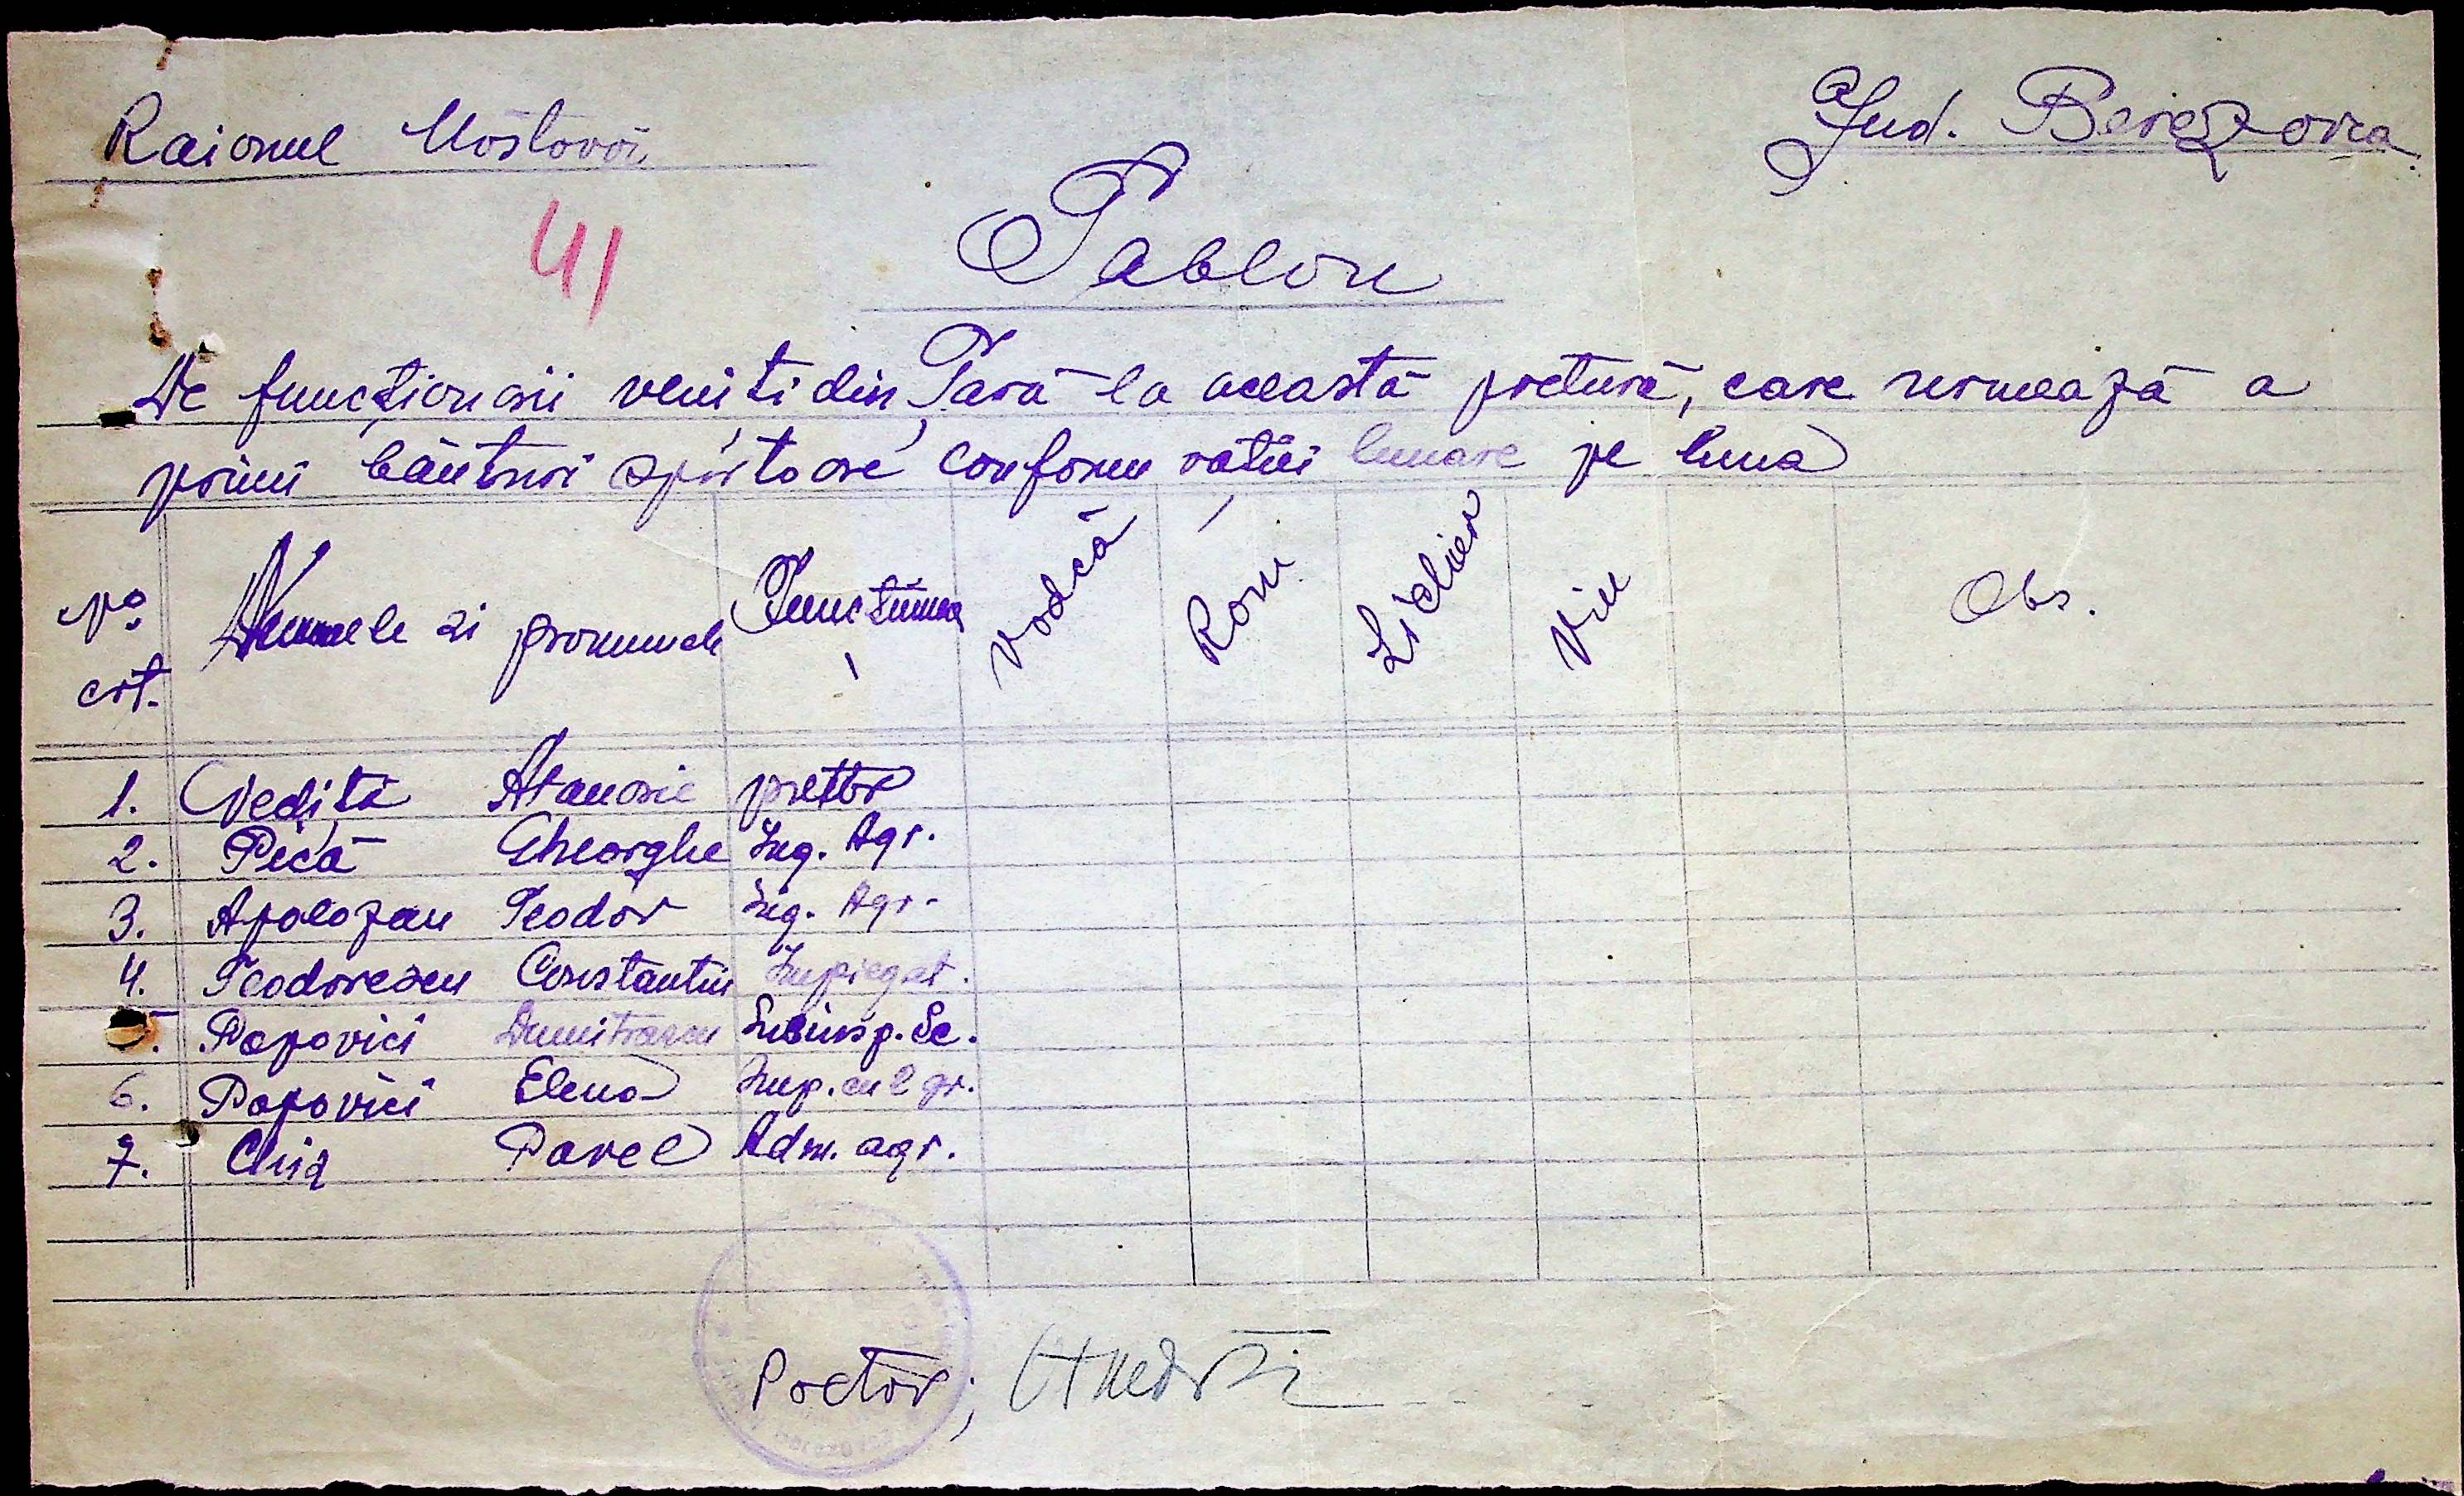 Raionul Mostovoi
Jud. Berezovca
41
Tablou
De funcționarii veniti din Țară la această pretură, care urmează a
primi băuturi spirtoase conform rației lunare pe luna
No. crt. Numele si pronumele Funcțiunea Vodcă Rom Lichior Vin Obs.
1. Nedița Atanasie pretor
2. Pică Gheorghe Ing. Agr.
3. Apolozan Teodor Ing. Agr.
4. Teodorescu Constantin Impiegat.
5. Popovici Dumitrascu Subinsp. Sc.
6. Popovici Elena Imp. cu 2 gr.
7. Chiș Pavel Adm. agr.
Pretor;